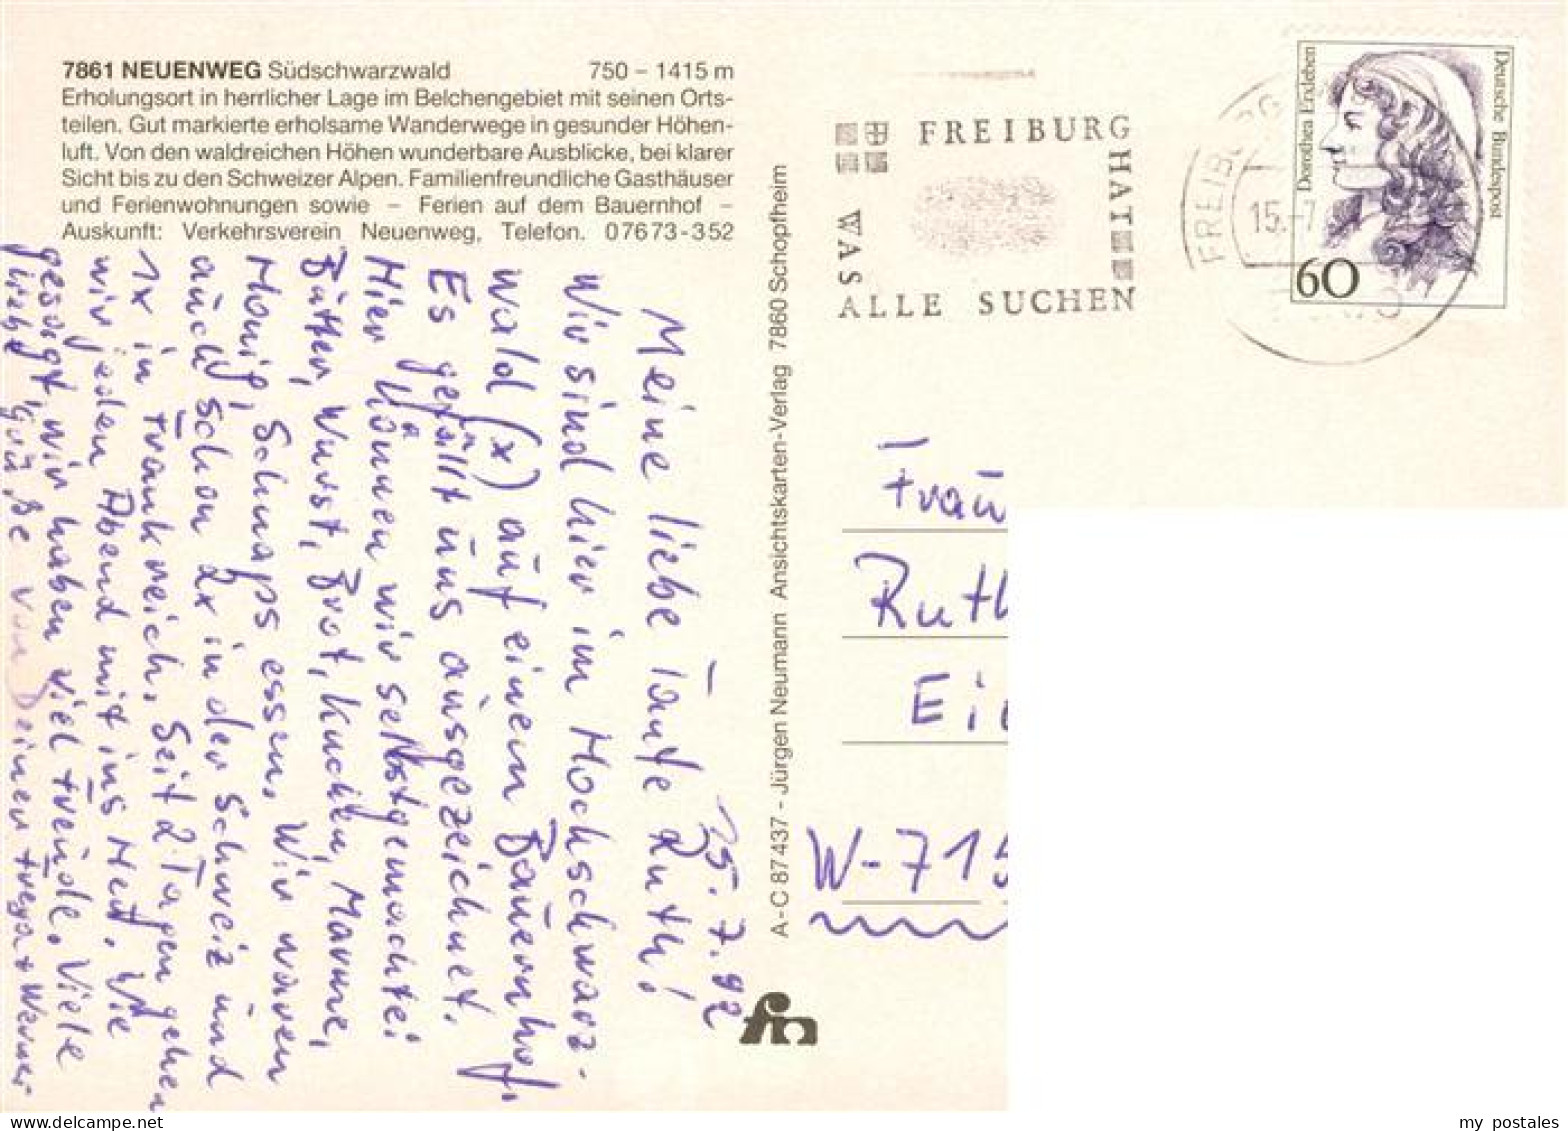 7861 NEUENWEG Südschwarzwald 750 – 1415 m
Erholungsort in herrlicher Lage im Belchengebiet mit seinen Orts-
teilen. Gut markierte erholsame Wanderwege in gesunder Höhen-
luft. Von den waldreichen Höhen wunderbare Ausblicke, bei klarer
Sicht bis zu den Schweizer Alpen. Familienfreundliche Gasthäuser
und Ferienwohnungen sowie – Ferien auf dem Bauernhof –
Auskunft: Verkehrsverein Neuenweg, Telefon. 07673-352
15.7.92
Meine liebe Tante Ruth!
Wir sind hier im Hochschwarz-
wald (x) auf einem Bauernhof.
Es gefällt uns ausgezeichnet.
Hier können wir selbstgemachte:
Butter, Wurst, Brot, Kuchen, Marme,
Honig, Schnaps essen. Wir waren
auch schon 2x in der Schweiz und
1x in Frankreich. Seit 2 Tagen gehen
wir jeden Abend mit ins Heu. Wie
gesagt, wir haben viel Freude. Viele
liebe Grüße von Deinen Frega + Werner
A-C 87 437 - Jürgen Neumann Ansichtskarten-Verlag 7860 Schopfheim
fm
FREIBURG
HAT
WAS
ALLE SUCHEN
FREIBURG
15.-7
Dorothea Erxleben
Deutsche Bundespost
60
Frau
Ruth
Ei
W-715
my postales